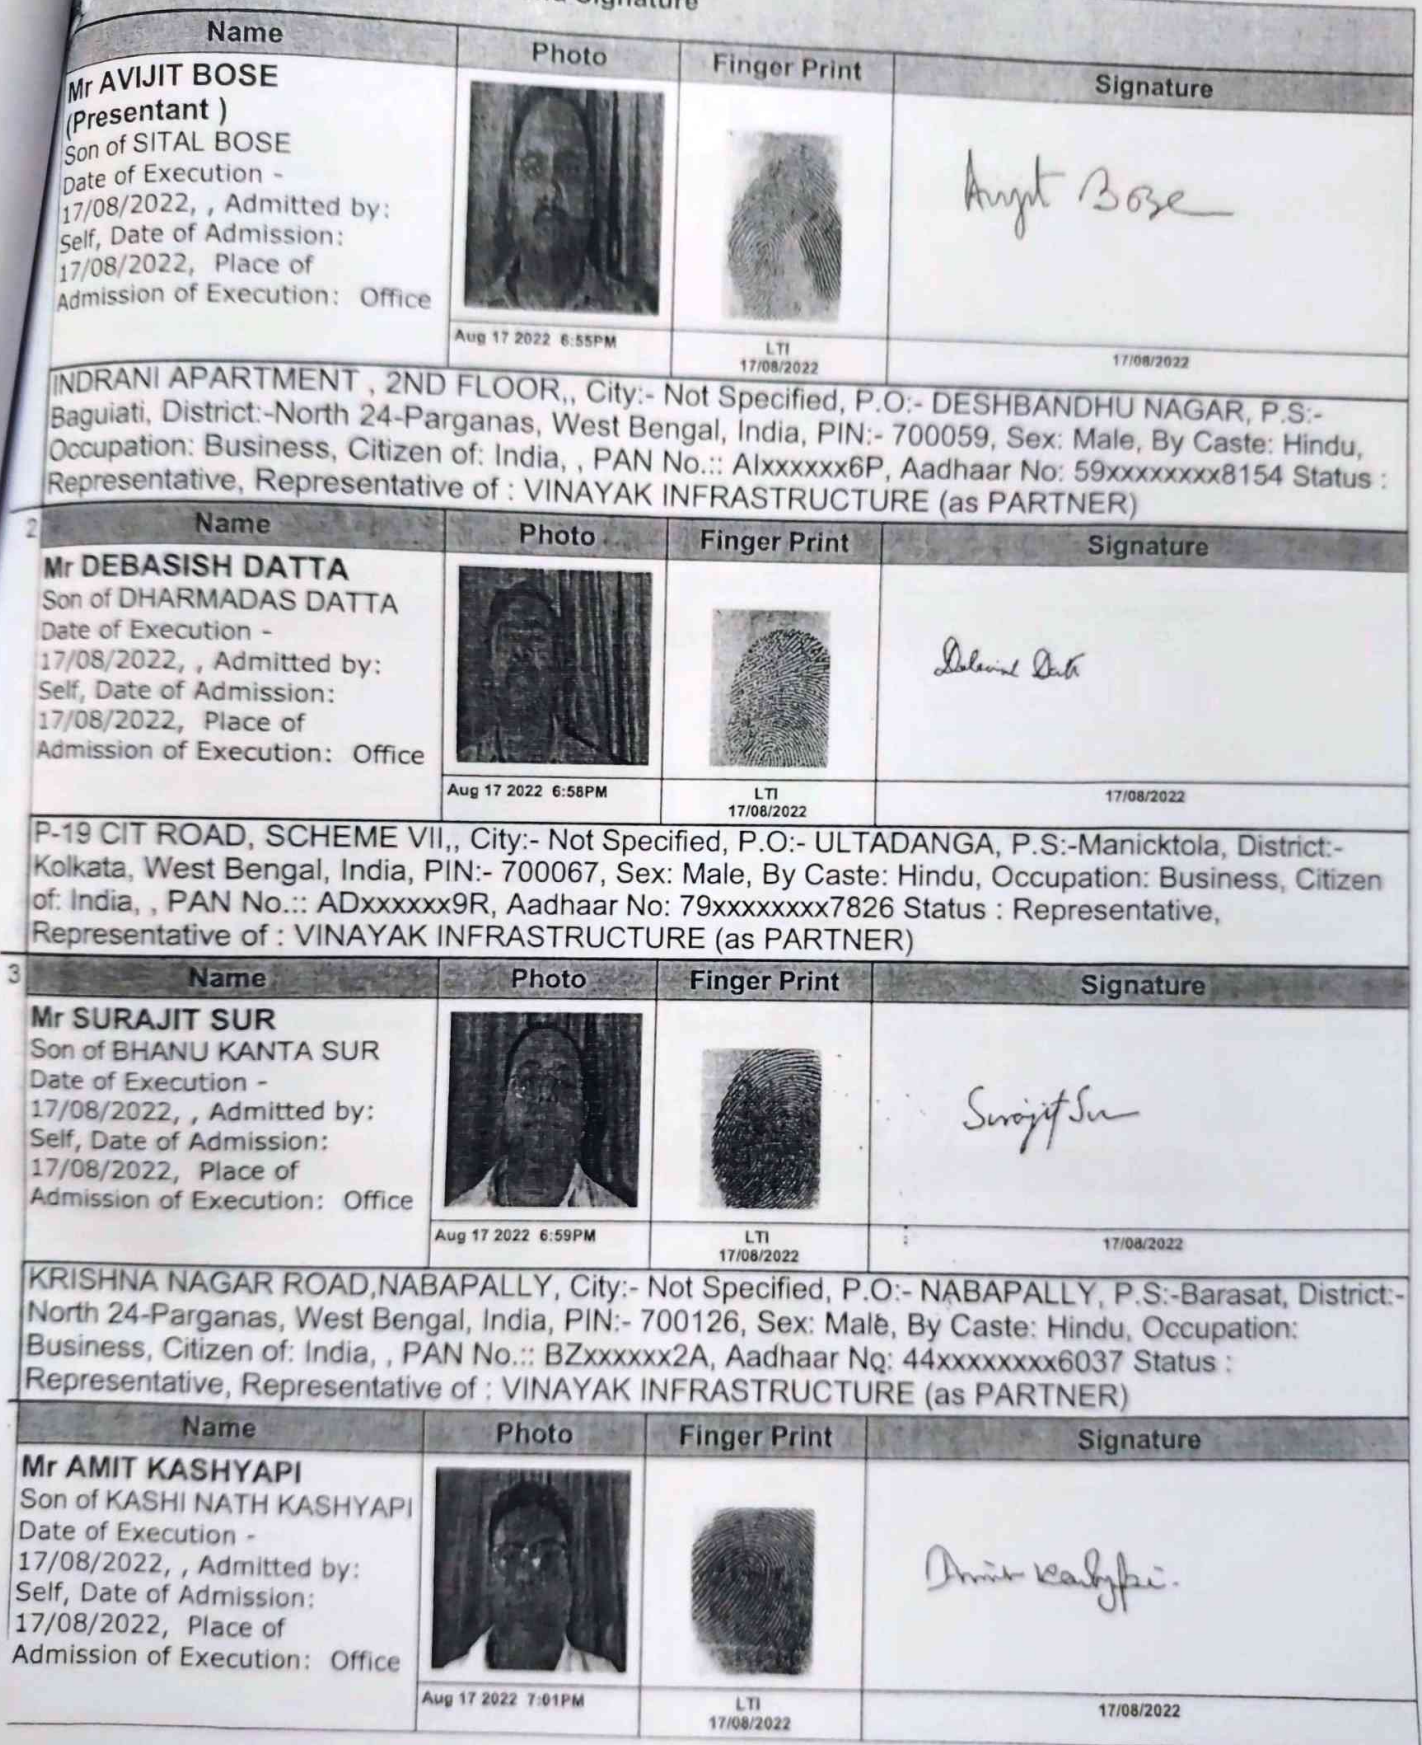 Signature
Name Photo Finger Print Signature
Mr AVIJIT BOSE
(Presentant )
Son of SITAL BOSE
Date of Execution -
17/08/2022, , Admitted by:
Self, Date of Admission:
17/08/2022, Place of
Admission of Execution: Office
Avijit Bose
Aug 17 2022 6:55PM
LTI
17/08/2022
17/08/2022
INDRANI APARTMENT , 2ND FLOOR,, City:- Not Specified, P.O:- DESHBANDHU NAGAR, P.S:-
Baguiati, District:-North 24-Parganas, West Bengal, India, PIN:- 700059, Sex: Male, By Caste: Hindu,
Occupation: Business, Citizen of: India, , PAN No.:: AIxxxxxx6P, Aadhaar No: 59xxxxxxxx8154 Status :
Representative, Representative of : VINAYAK INFRASTRUCTURE (as PARTNER)
2
Name Photo Finger Print Signature
Mr DEBASISH DATTA
Son of DHARMADAS DATTA
Date of Execution -
17/08/2022, , Admitted by:
Self, Date of Admission:
17/08/2022, Place of
Admission of Execution: Office
Aug 17 2022 6:58PM
LTI
17/08/2022
17/08/2022
P-19 CIT ROAD, SCHEME VII,, City:- Not Specified, P.O:- ULTADANGA, P.S:-Manicktola, District:-
Kolkata, West Bengal, India, PIN:- 700067, Sex: Male, By Caste: Hindu, Occupation: Business, Citizen
of: India, , PAN No.:: ADxxxxxx9R, Aadhaar No: 79xxxxxxxx7826 Status : Representative,
Representative of : VINAYAK INFRASTRUCTURE (as PARTNER)
3
Name Photo Finger Print Signature
Mr SURAJIT SUR
Son of BHANU KANTA SUR
Date of Execution -
17/08/2022, , Admitted by:
Self, Date of Admission:
17/08/2022, Place of
Admission of Execution: Office
Surajit Sur
Aug 17 2022 6:59PM
LTI
17/08/2022
17/08/2022
KRISHNA NAGAR ROAD,NABAPALLY, City:- Not Specified, P.O:- NABAPALLY, P.S:-Barasat, District:-
North 24-Parganas, West Bengal, India, PIN:- 700126, Sex: Male, By Caste: Hindu, Occupation:
Business, Citizen of: India, , PAN No.:: BZxxxxxx2A, Aadhaar No: 44xxxxxxxx6037 Status :
Representative, Representative of : VINAYAK INFRASTRUCTURE (as PARTNER)
Name Photo Finger Print Signature
Mr AMIT KASHYAPI
Son of KASHI NATH KASHYAPI
Date of Execution -
17/08/2022, , Admitted by:
Self, Date of Admission:
17/08/2022, Place of
Admission of Execution: Office
Amit Kashyapi.
Aug 17 2022 7:01PM
LTI
17/08/2022
17/08/2022